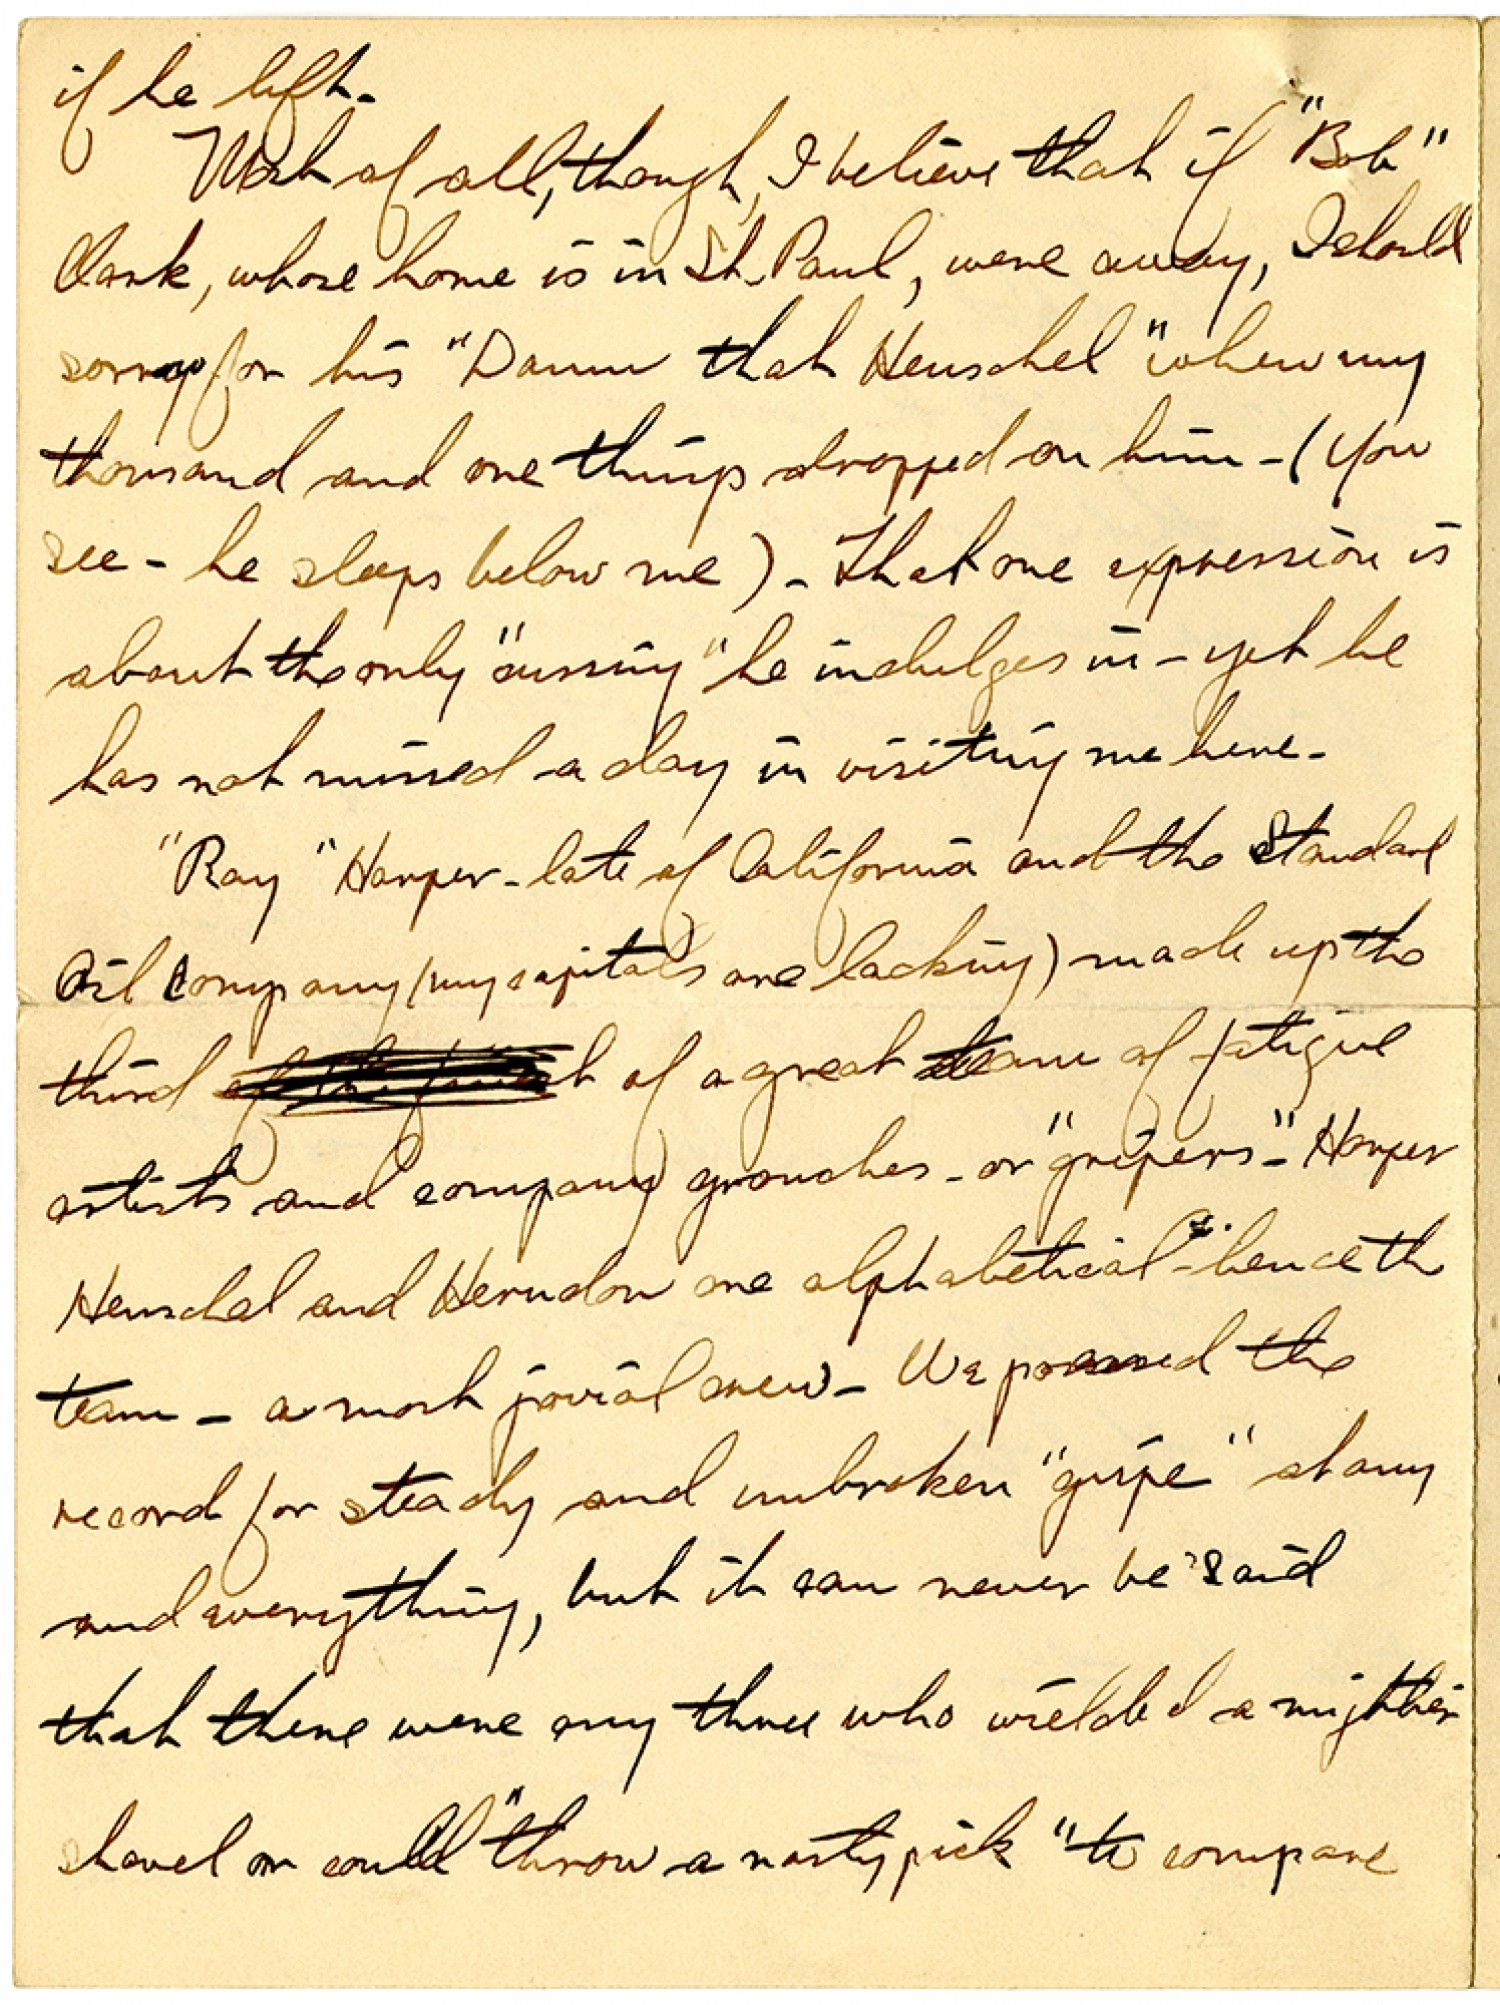 if he left-
Most of all, though, I believe that if "Bob"
Clark, whose home is in St. Paul, were away, I should
sorrow for his "Damn that Henschel" when my
thousand and one things dropped on him - (you
see - he sleeps below me) - That one expression is
about the only "cussing" he indulges in - yet he
has not missed a day in visiting me here -
"Ray" Harper - late of California and the Standard
Oil Company (my capitals are lacking) made up the
third of a great team of fatigue
artists and company grouches - or "gripers" - Harper
Henschel and Herndon are alphabetical - hence th
team - a most jovial crew - We possessed the
record for steady and unbroken "gripe" at any
and everything, but it can never be said
that there were any three who wielded a mightier
shovel or could "throw a nasty pick" to compare